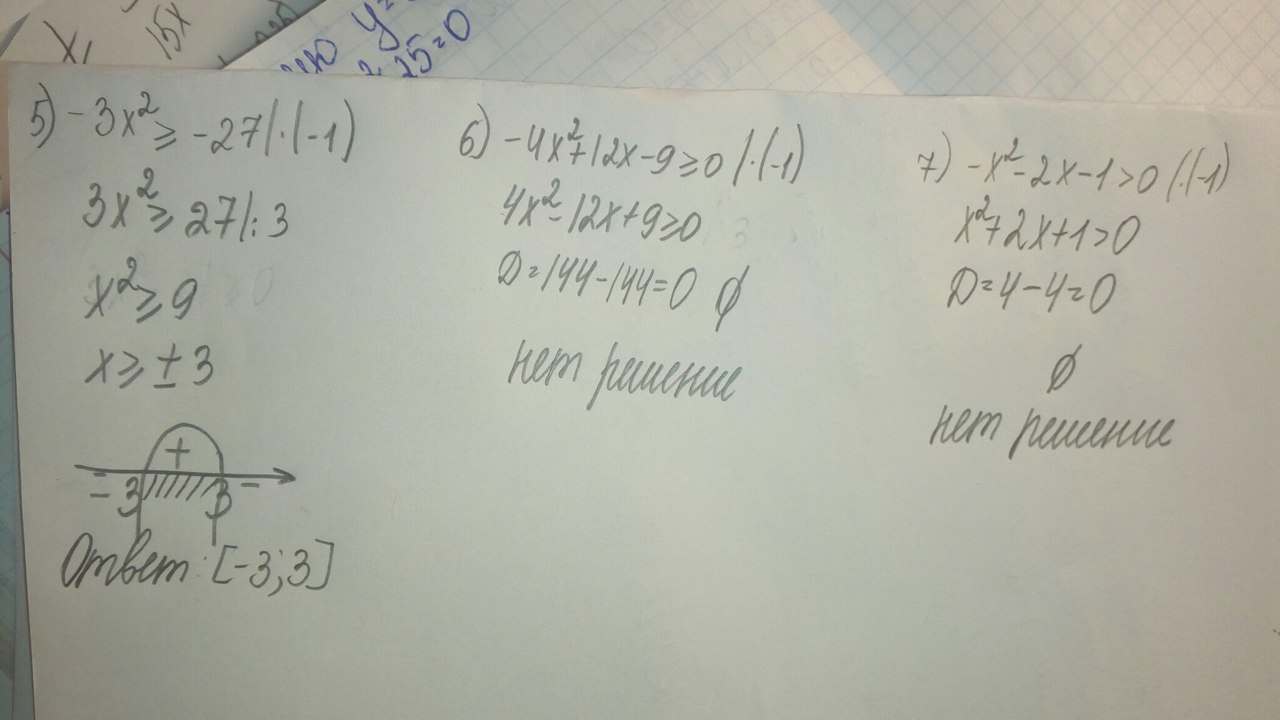 x₁
15x
y=
25=0
5) -3x² ≥ -27 |·(-1)
3x² ≥ 27 |:3
x² ≥ 9
x ≥ ± 3
+
- 3 3 -
Ответ: [-3;3]
6) -4x²+12x-9≥0 /·(-1)
4x²-12x+9≥0
D=144-144=0 ∅
нет решение
7) -x²-2x-1>0 /·(-1)
x²+2x+1>0
D=4-4=0
∅
нет решение